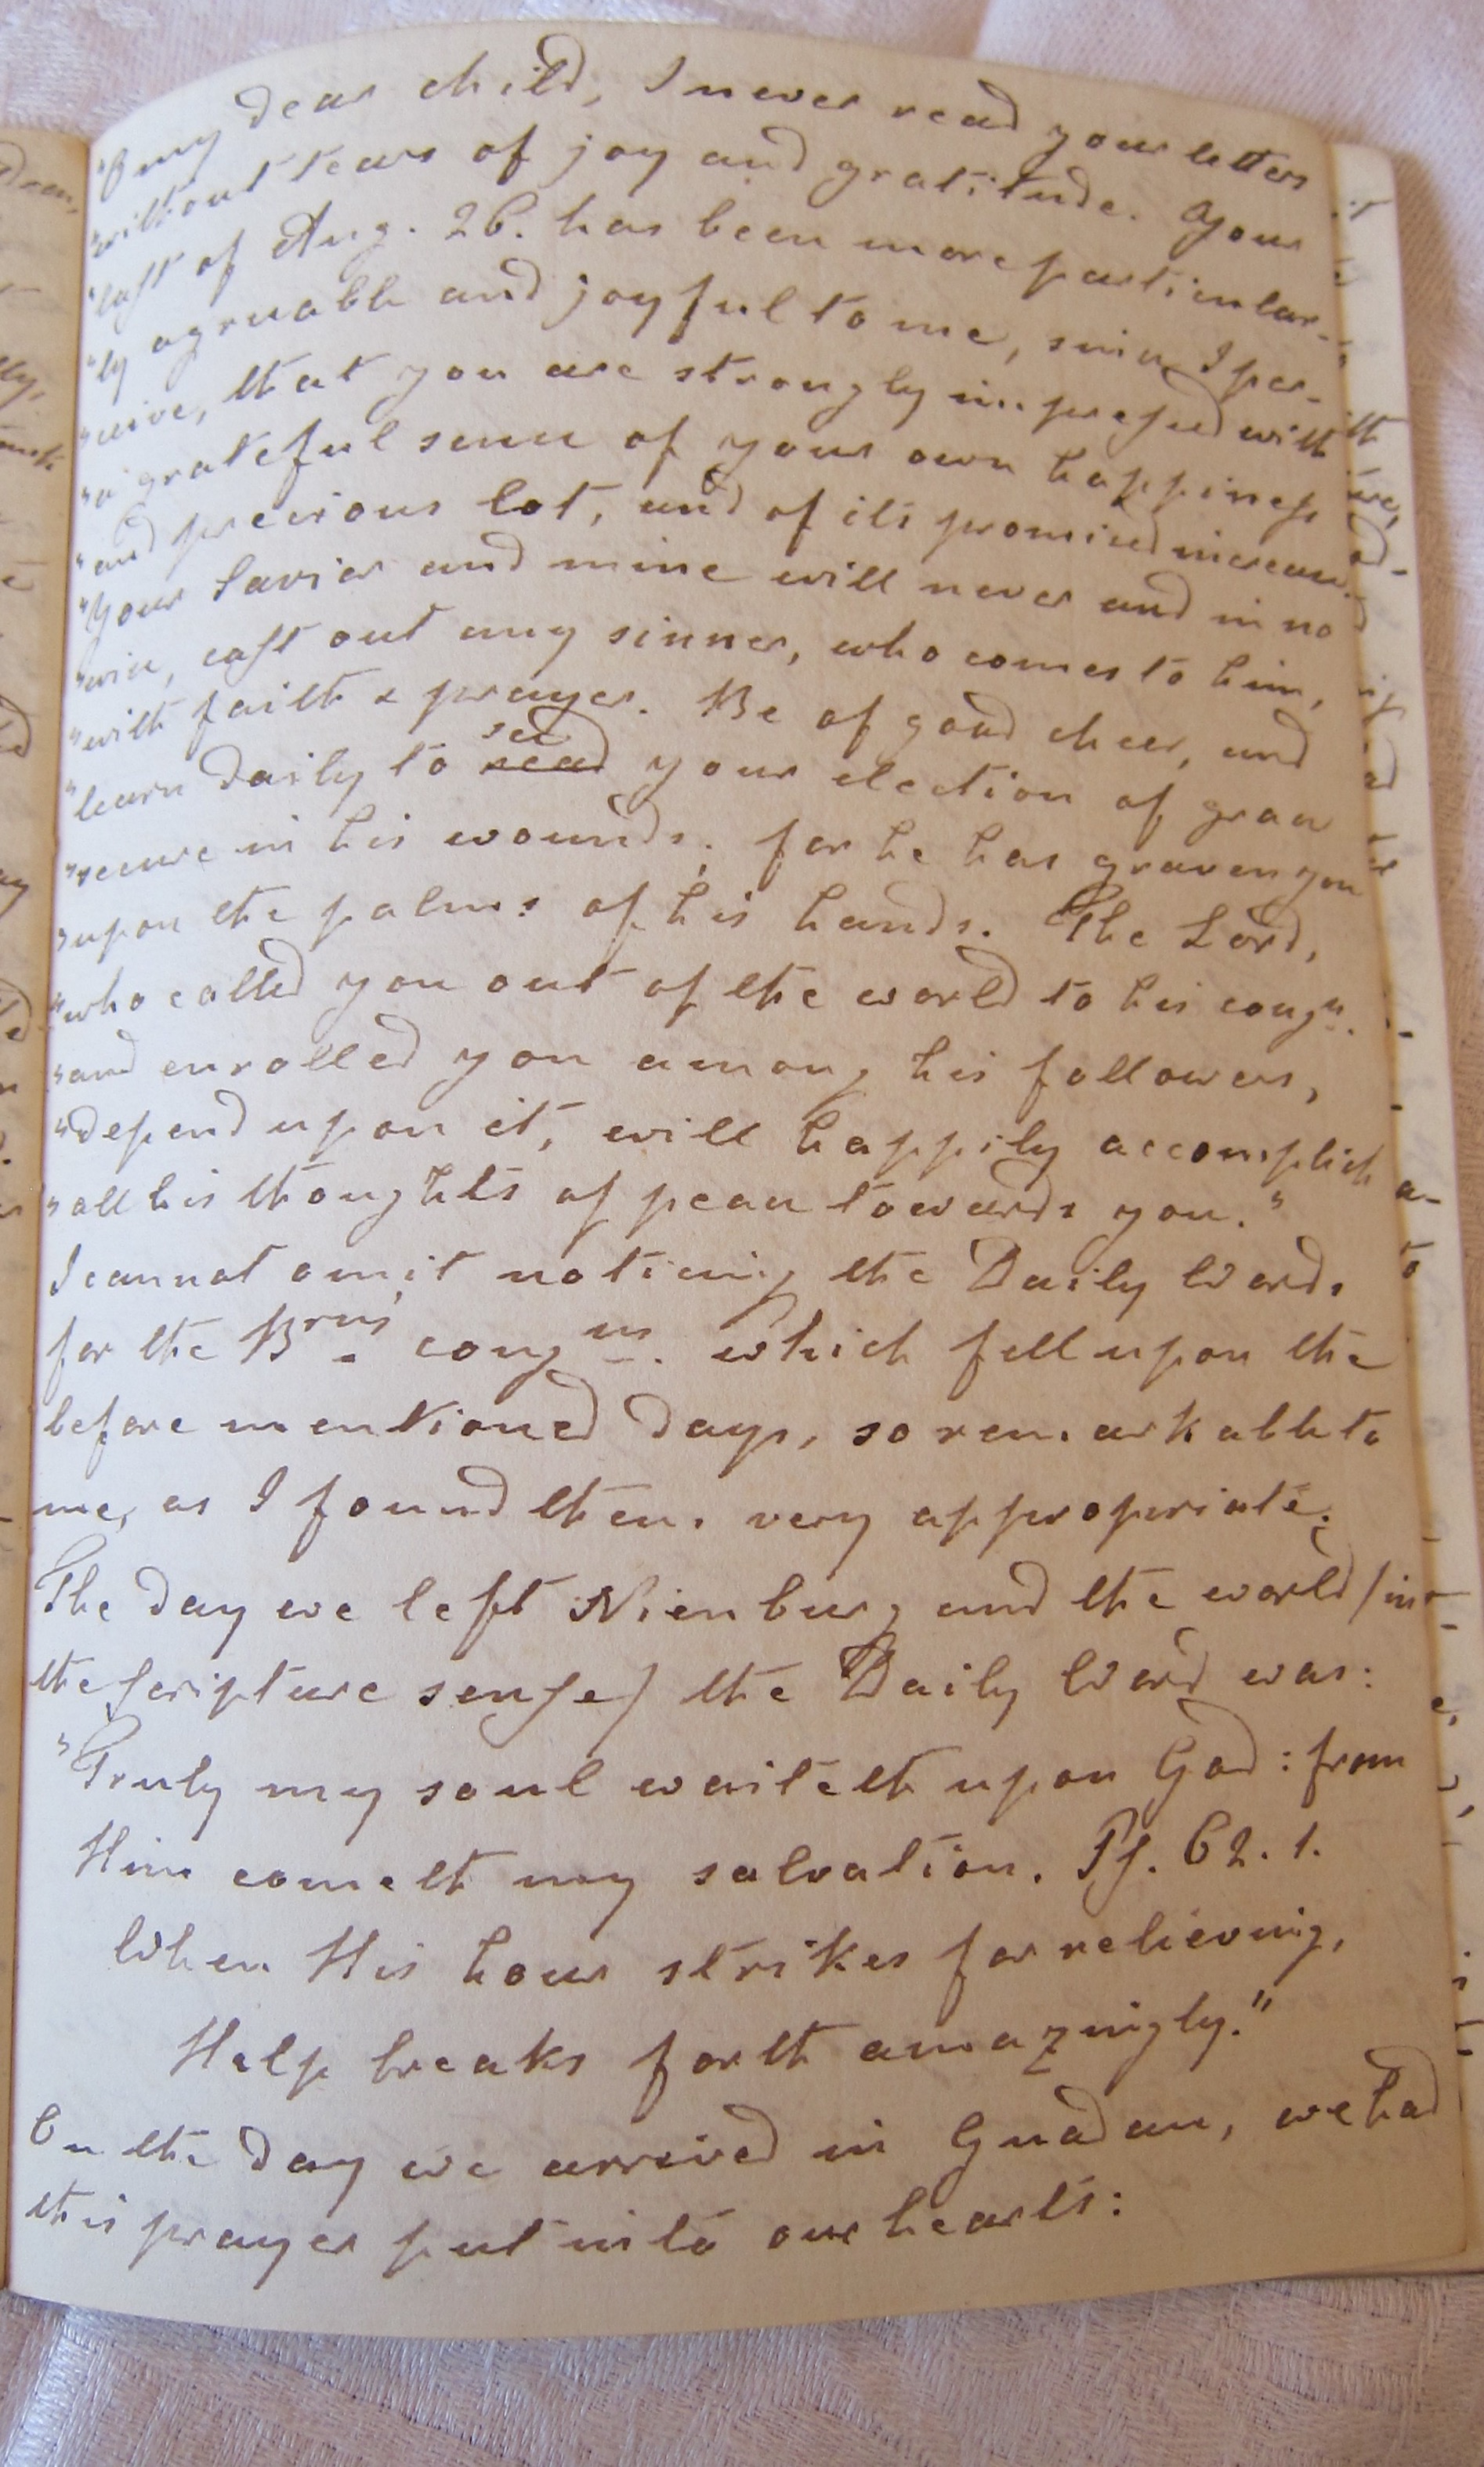 "O my dear child, I never read your letters
"without tears of joy and gratitude. Your
"last of Aug. 26. has been more particular-
"ly agreeable and joyful to me, since I per-
"ceive, that you are strongly impressed with
"a grateful sense of your own happiness
"and precious lot, and of its promised increase.
"Your Savior and mine will never and in no
"wise, cast out any sinner, who comes to him,
"with faith & prayer. Be of good cheer, and
see
"learn daily to read your election of grace
"secure in his wounds; for he has graven you
"upon the palms of his hands. The Lord,
"who called you out of the world to his congn.
"and enrolled you among his followers,
"depend upon it, will happily accomplish
"all his thoughts of peace towards you."
I cannot omit noticing the Daily Words
for the Brns' congns. which fell upon the
before mentioned days, so remarkable to
me, as I found them very appropriate.
The day we left Nienburg and the world /in
the scripture sense/ the Daily Word was:
"Truly my soul waiteth upon God: from
Him cometh my salvation. Ps. 62. 1.
When His hour strikes for relieving,
Help breaks forth amazingly."
On the day we arrived in Gnadau, we had
this prayer put into our hearts: